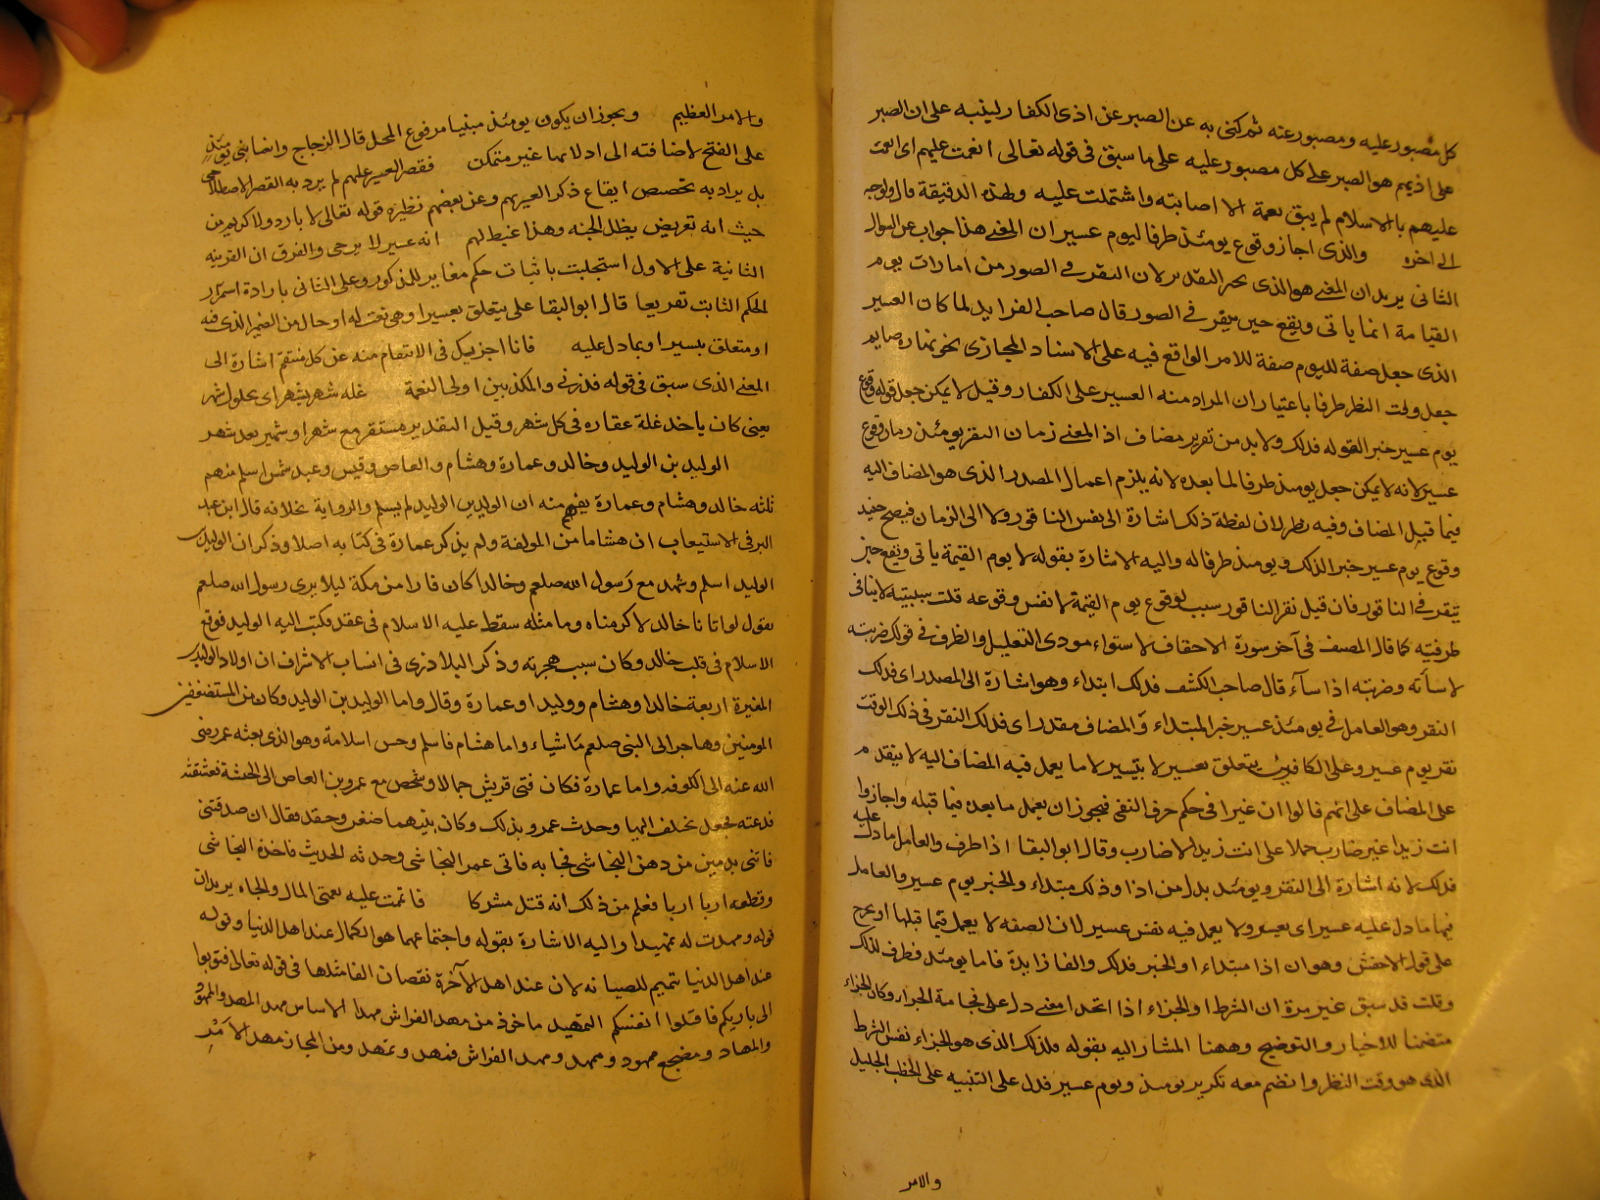 كل مصبور عليه ومصبور عنه ثم كنى به عن الصبر عن اذى الكفار لينبه على ان الصبر
على اذيهم هو الصبر على كل مصبور عليه على ما سبق فى قوله تعالى انعمت عليهم اى انعمت
عليهم بالاسلام لم يبق نعمة الا اصابته واشتملت عليه ولهذه الدقيقة قال ولوجه
الى اخره والذى اجاز وقوع يومئذ ظرفا ليوم عسير ان المعنى هذا جواب عن السوال
الثانى يريد ان المعنى هو الذى التقدير لان النقر فى الصور من امارات يوم
القيامة انما ياتى ويقع حين ينقر فى الصور قال صاحب الفرايد لما كان العسير
الذى جعل صفة لليوم صفة للامر الواقع فيه على الاسناد المجازى نحو نهاره صايم
جعل وقت النظر ظرفا باعتبار ان المراد منه العسير على الكفار وقيل لا يمكن جعل قوله وقوع
يوم عسير خبر القوله فذلك ولا بد من تقدير مضاف اذ المعنى زمان النقر يومئذ زمان وقوع
عسير لانه لا يمكن جعل يومئذ ظرفا لما بعده لانه يلزم اعمال المصدر الذى هو المضاف اليه
فيما قبل المضاف وفيه نظر لان لفظة ذلك اشارة الى نفس الناقور ولا الى الزمان فيصح حينئذ
وقوع يوم عسير خبر الذلك ويومئذ ظرفا له واليه الاشارة بقوله لا يوم القيمة ياتى ويقع حين
ينقر فى الناقور فان قيل نقر الناقور سبب لوقوع يوم القيمة لا نفس وقوعه قلت سببيته لا ينافى
ظرفيته كما قال المصنف فى آخر سورة الاحقاف لاستواء مودى التعليل والظرف فى قولك ضربته
لاسآته وضربته اذا سآء قال صاحب الكشف فذلك ابتداء وهو اشارة الى المصدر اى فذلك
النقر وهو العامل فى يومئذ عسير خبر المبتداء والمضاف مقدر اى فذلك النقر فى ذلك الوقت
نقر يوم عسير وعلى الكافرين يتعلق بعسير لا بيسير لا ما يعمل فيه المضاف اليه لا يتقدم
على المضاف على انهم قالوا ان غيرا فى حكم حرف النفى فيجوز ان يعمل ما بعده فيما قبله واجازوا
انت زيدا غير ضارب حملا على انت زيدا لا ضارب وقال ابو البقا اذا ظرف والعامل ما دل عليه
فذلك لانه اشارة الى النقر ويومئذ بدل من اذا وذلك مبتداء والخبر يوم عسير والعامل
فيها ما دل عليه عسير اى يعسر ولا يعمل فيه نفس عسير لان الصفه لا يعمل فيما قبلها او يخرج
على قول الاخفش وهو ان اذا مبتداء والخبر فذلك والفا زايدة فاما يومئذ فظرف لذلك
وقلت قد سبق غير مرة ان الشرط والجزاء اذا اتحدا معنى دل على فخامة الجزاء وكان الجزاء
متضمنا للاخبار والتوضيح وههنا المشار اليه بقوله فلذلك الذى هو الجزاء نفس الشرط
الذى هو وقت النظر وانضم معه تكرير يومئذ ويوم عسير فدل على التنبيه على الخطب الجليل
والامر
والامر العظيم ويجوز ان يكون يومئذ مبنيا مرفوع المحل قال الزجاج وانما بنى يومئذ
على الفتح لاضافته الى اذ لانها غير متمكن فقصر العسر عليهم لم يرد به القصر الاصطلاحى
بل يراد به تخصص ايقاع ذكر العسر بهم وعن بعضهم نظيره قوله تعالى لا بارد ولا كريم من
حيث انه تعريض بظل الجنه وهذا غيظ لهم انه عسير لا يرجى والفرق ان القرينه
الثانية على الاول استجلبت باثبات حكم مغاير للمذكور وعلى الثانى بارادة استمرار
الحكم الثابت تقريعا قال ابو البقا على يتعلق بعسير او هى نعت له او حال من الضمير الذى فيه
او متعلق بيسير او بما دل عليه فانا اجزيك فى الانتقام منه عن كل منتقم اشارة الى
المعنى الذى سبق فى قوله فذرنى والمكذبين اولى النعمة غله شهر بشهر اى بحلول شهر
يعنى كان ياخذ غلة عقاره فى كل شهر وقيل التقدير مستقر مع شهر او شهر بعد شهر
الوليد بن الوليد وخالد وعمارة وهشام والعاص وقيس وعبد شمس اسلم منهم
ثلثه خالد وهشام وعمارة يفهم منه ان الوليد بن الوليد لم يسلم والرواية بخلافه قال ابن عبد
البر فى الاستيعاب ان هشاما من المولفة ولم يذكر عمارة فى كتابه اصلا وذكر ان الوليد بن
الوليد اسلم وشهد مع رسول الله صلعم وخالدا كان فارا من مكة ليلا يرى رسول الله صلعم
يقول لو اتانا خالد لاكرمناه وما مثله سقط عليه الاسلام فى عقد فكتب اليه الوليد فوقع
الاسلام فى قلب خالد وكان سبب هجرته وذكر البلاذرى فى انساب الاشراف ان اولاد الوليد بن
المغيرة اربعة خالدا وهشام ووليدا وعمارة وقال واما الوليد بن الوليد وكان من المستضعفين
المومنين وهاجر الى النبى صلعم ماشيا واما هشام فاسلم وحسن اسلامه وهو الذى بعثه عمر رضى
الله عنه الى الكوفه واما عمارة فكان فتى قريش جمالا وشخص مع عمرو بن العاص الى الحبشة فعشقته
فدعته فجعل يختلف اليها وحدث عمرو بذلك وكان بينهما ضغن وحقد فقال ان صدقتنى
فاتنى بدهن من دهن النجاشى فجا به فاتى عمرو النجاشى وحدثه الحديث فاخذه النجاشى
وقطعه اربا اربا فعلم من ذلك انه قتل مشركا فاتممت عليه نعمتى المال والجاه يريد ان
قوله ومهدت له تمهيدا واليه الاشارة بقوله واجتماعهما هو الكمال عند اهل الدنيا وقوله
عند اهل الدنيا تتميم للصيانه لان عند اهل الآخرة نقصان الفا مثلها فى قوله تعالى فتوبوا
الى باريكم فاقتلوا انفسكم التمهيد ماخوذ من مهد الفراش مهدا الاساس مهد المهد والمهود
والمهاد ومضجع ممهود وممهد ومهد الفراش فمهد وتمهد ومن المجاز مهد الامر